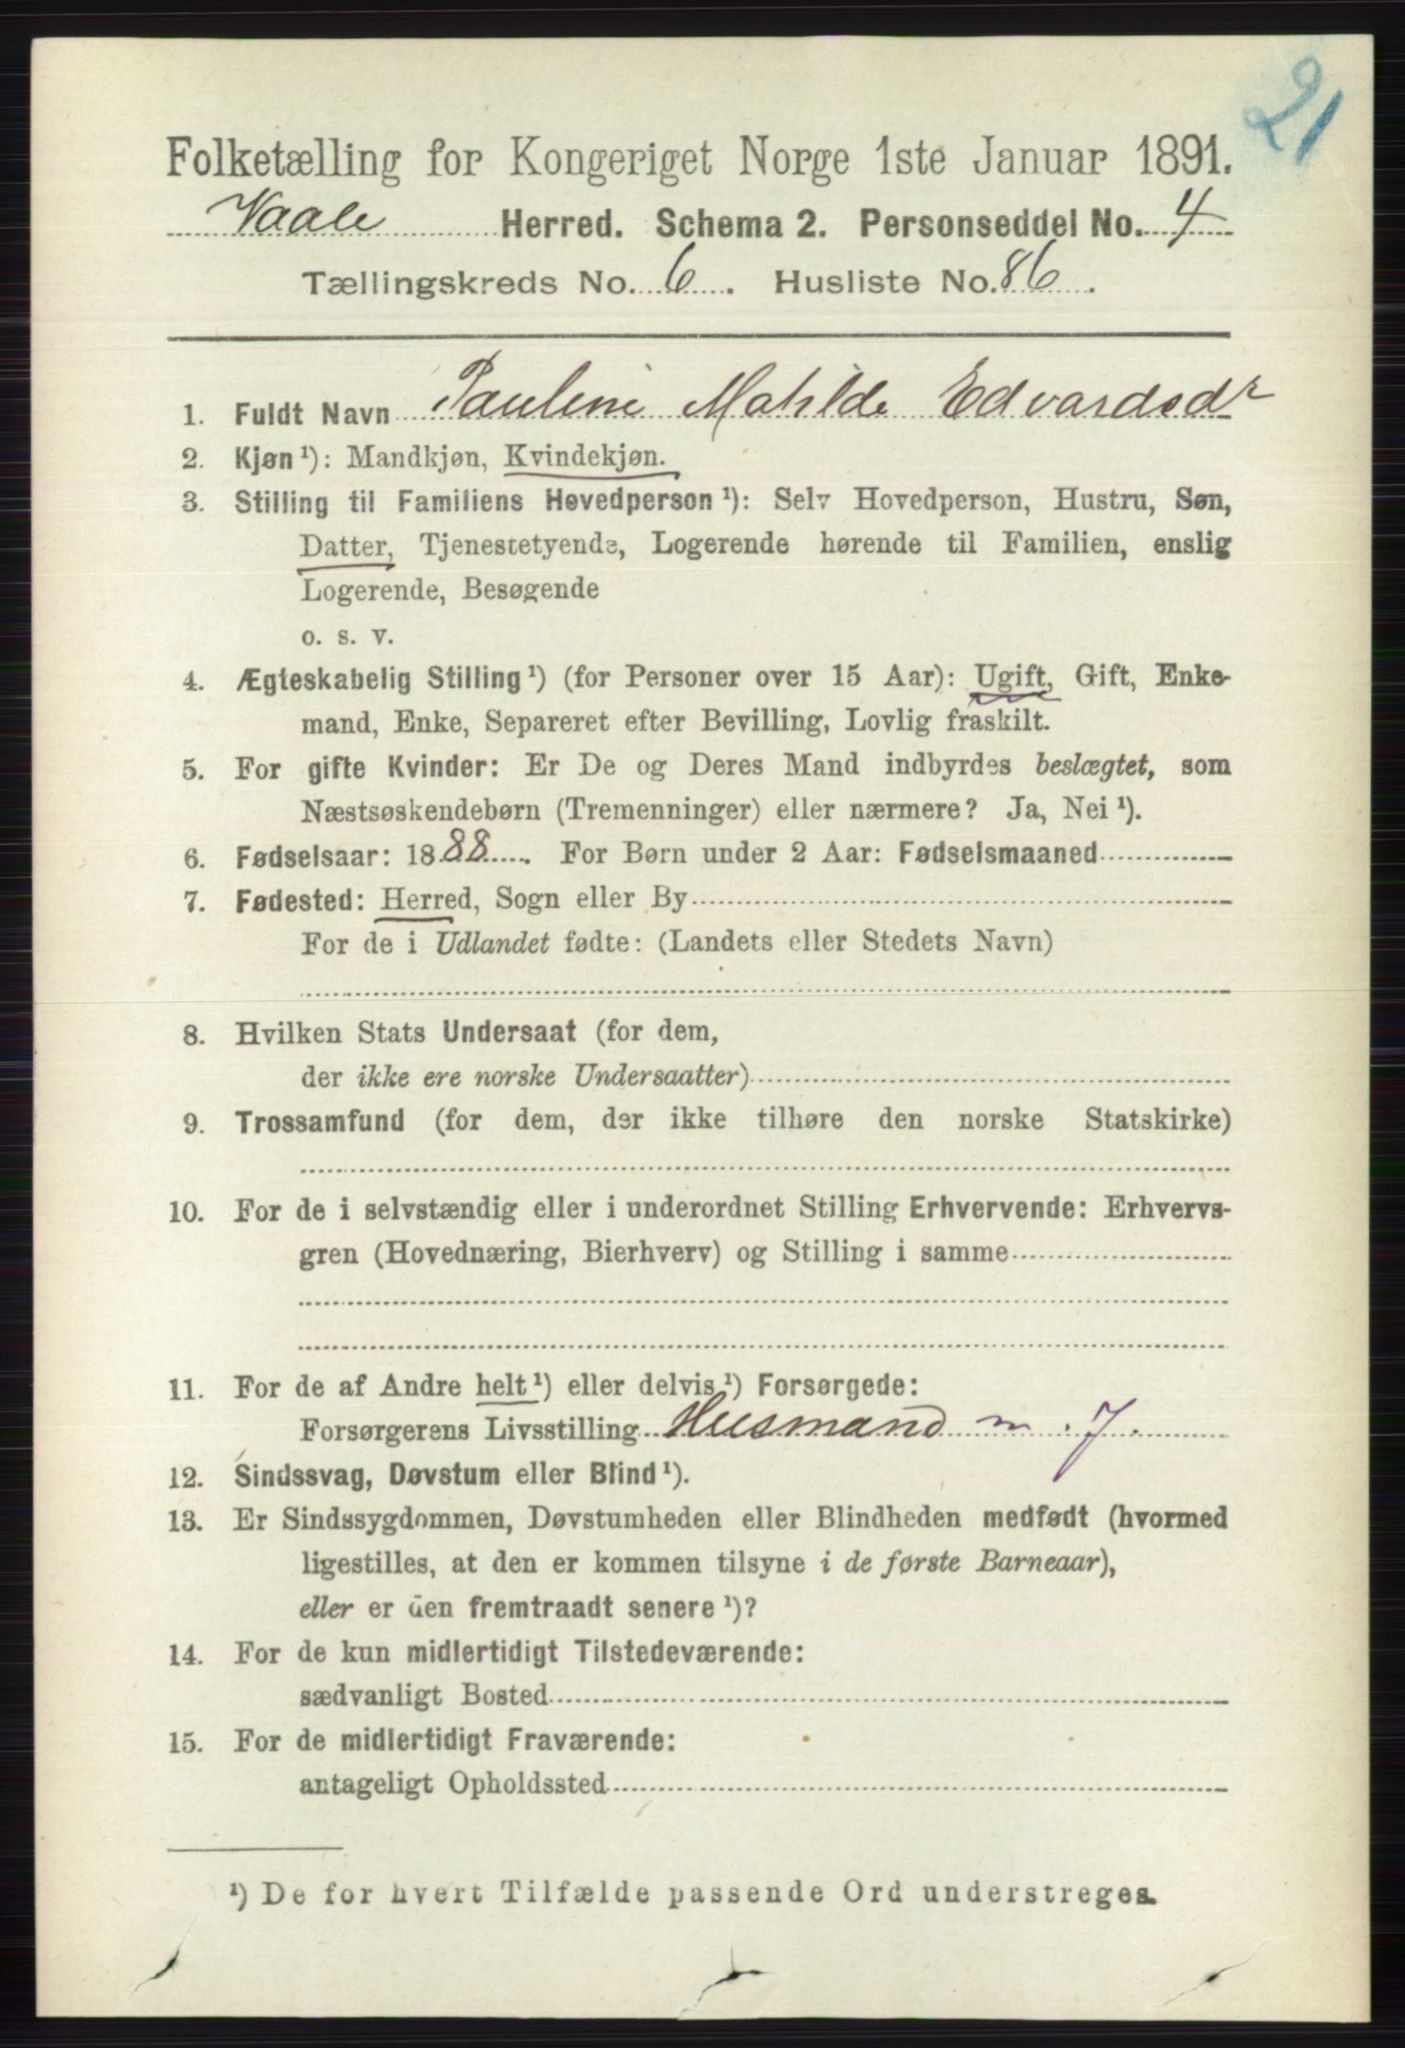 21
Folketælling for Kongeriget Norge 1ste Januar 1891.
Vaale Herred. Schema 2. Personseddel No. 4
Tællingskreds No. 6. Husliste No. 86.
1. Fuldt Navn Pauline Mathilde Edvardsdr
2. Kjøn ¹): Mandkjøn, Kvindekjøn.
3. Stilling til Familiens Hovedperson ¹): Selv Hovedperson, Hustru, Søn,
Datter, Tjenestetyende, Logerende hørende til Familien, enslig
Logerende, Besøgende
o. s. v.
4. Ægteskabelig Stilling ¹) (for Personer over 15 Aar): Ugift, Gift, Enke-
mand, Enke, Separeret efter Bevilling, Lovlig fraskilt.
5. For gifte Kvinder: Er De og Deres Mand indbyrdes beslægtet, som
Næstsøskendebørn (Tremenninger) eller nærmere? Ja, Nei ¹).
6. Fødselsaar: 1888. For Børn under 2 Aar: Fødselsmaaned
7. Fødested: Herred, Sogn eller By
For de i Udlandet fødte: (Landets eller Stedets Navn)
8. Hvilken Stats Undersaat (for dem,
der ikke ere norske Undersaatter)
9. Trossamfund (for dem, der ikke tilhøre den norske Statskirke)
10. For de i selvstændig eller i underordnet Stilling Erhvervende: Erhvervs-
gren (Hovednæring, Bierhverv) og Stilling i samme
11. For de af Andre helt ¹) eller delvis ¹) Forsørgede:
Forsørgerens Livsstilling Husmand m. J.
12. Sindssvag, Døvstum eller Blind ¹).
13. Er Sindssygdommen, Døvstumheden eller Blindheden medfødt (hvormed
ligestilles, at den er kommen tilsyne i de første Barneaar),
eller er den fremtraadt senere ¹)?
14. For de kun midlertidigt Tilstedeværende:
sædvanligt Bosted
15. For de midlertidigt Fraværende:
antageligt Opholdssted
¹) De for hvert Tilfælde passende Ord understreges.